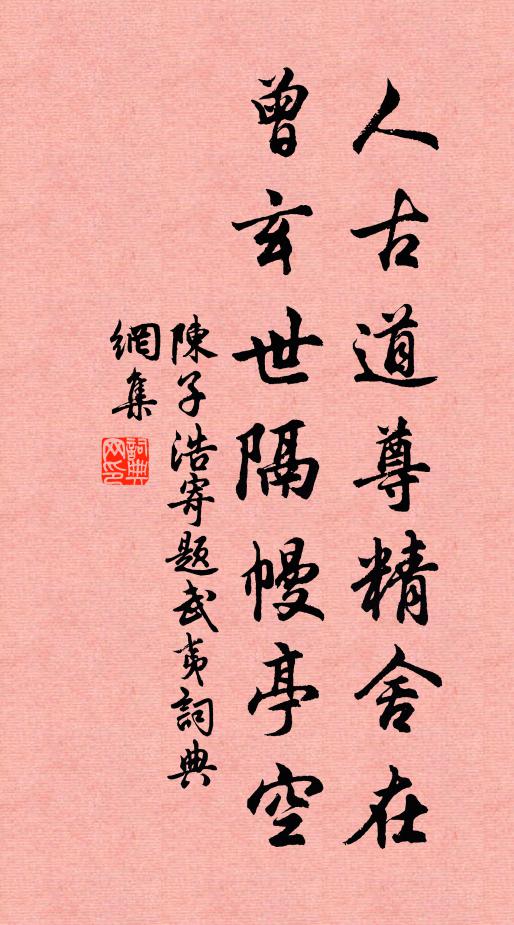 人古道尊精舍在
曾玄世隔幔亭空
陳子浩寄題武夷詞典
網集
詞典網印